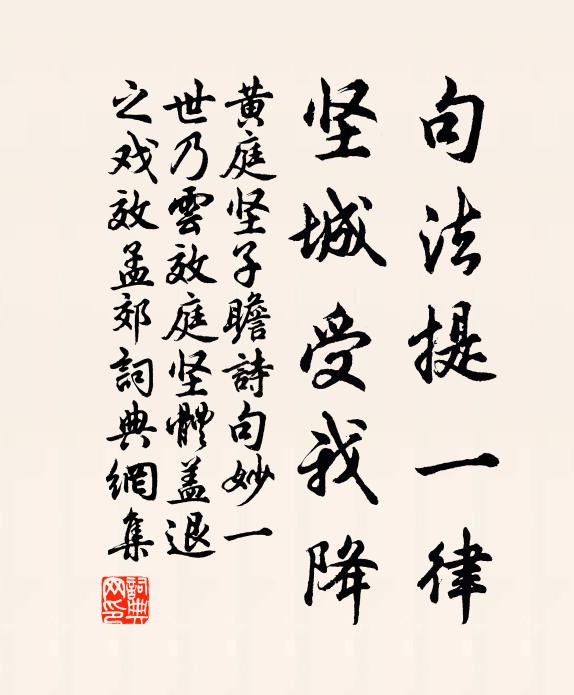 句法提一律
坚城受我降
黄庭坚子瞻詩句妙一
世乃雲效庭坚體蓋退
之戏效孟郊詞典網集
詞典网印